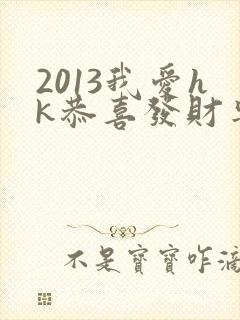 2013我愛h
k恭喜發財
不是寶寶咋滴